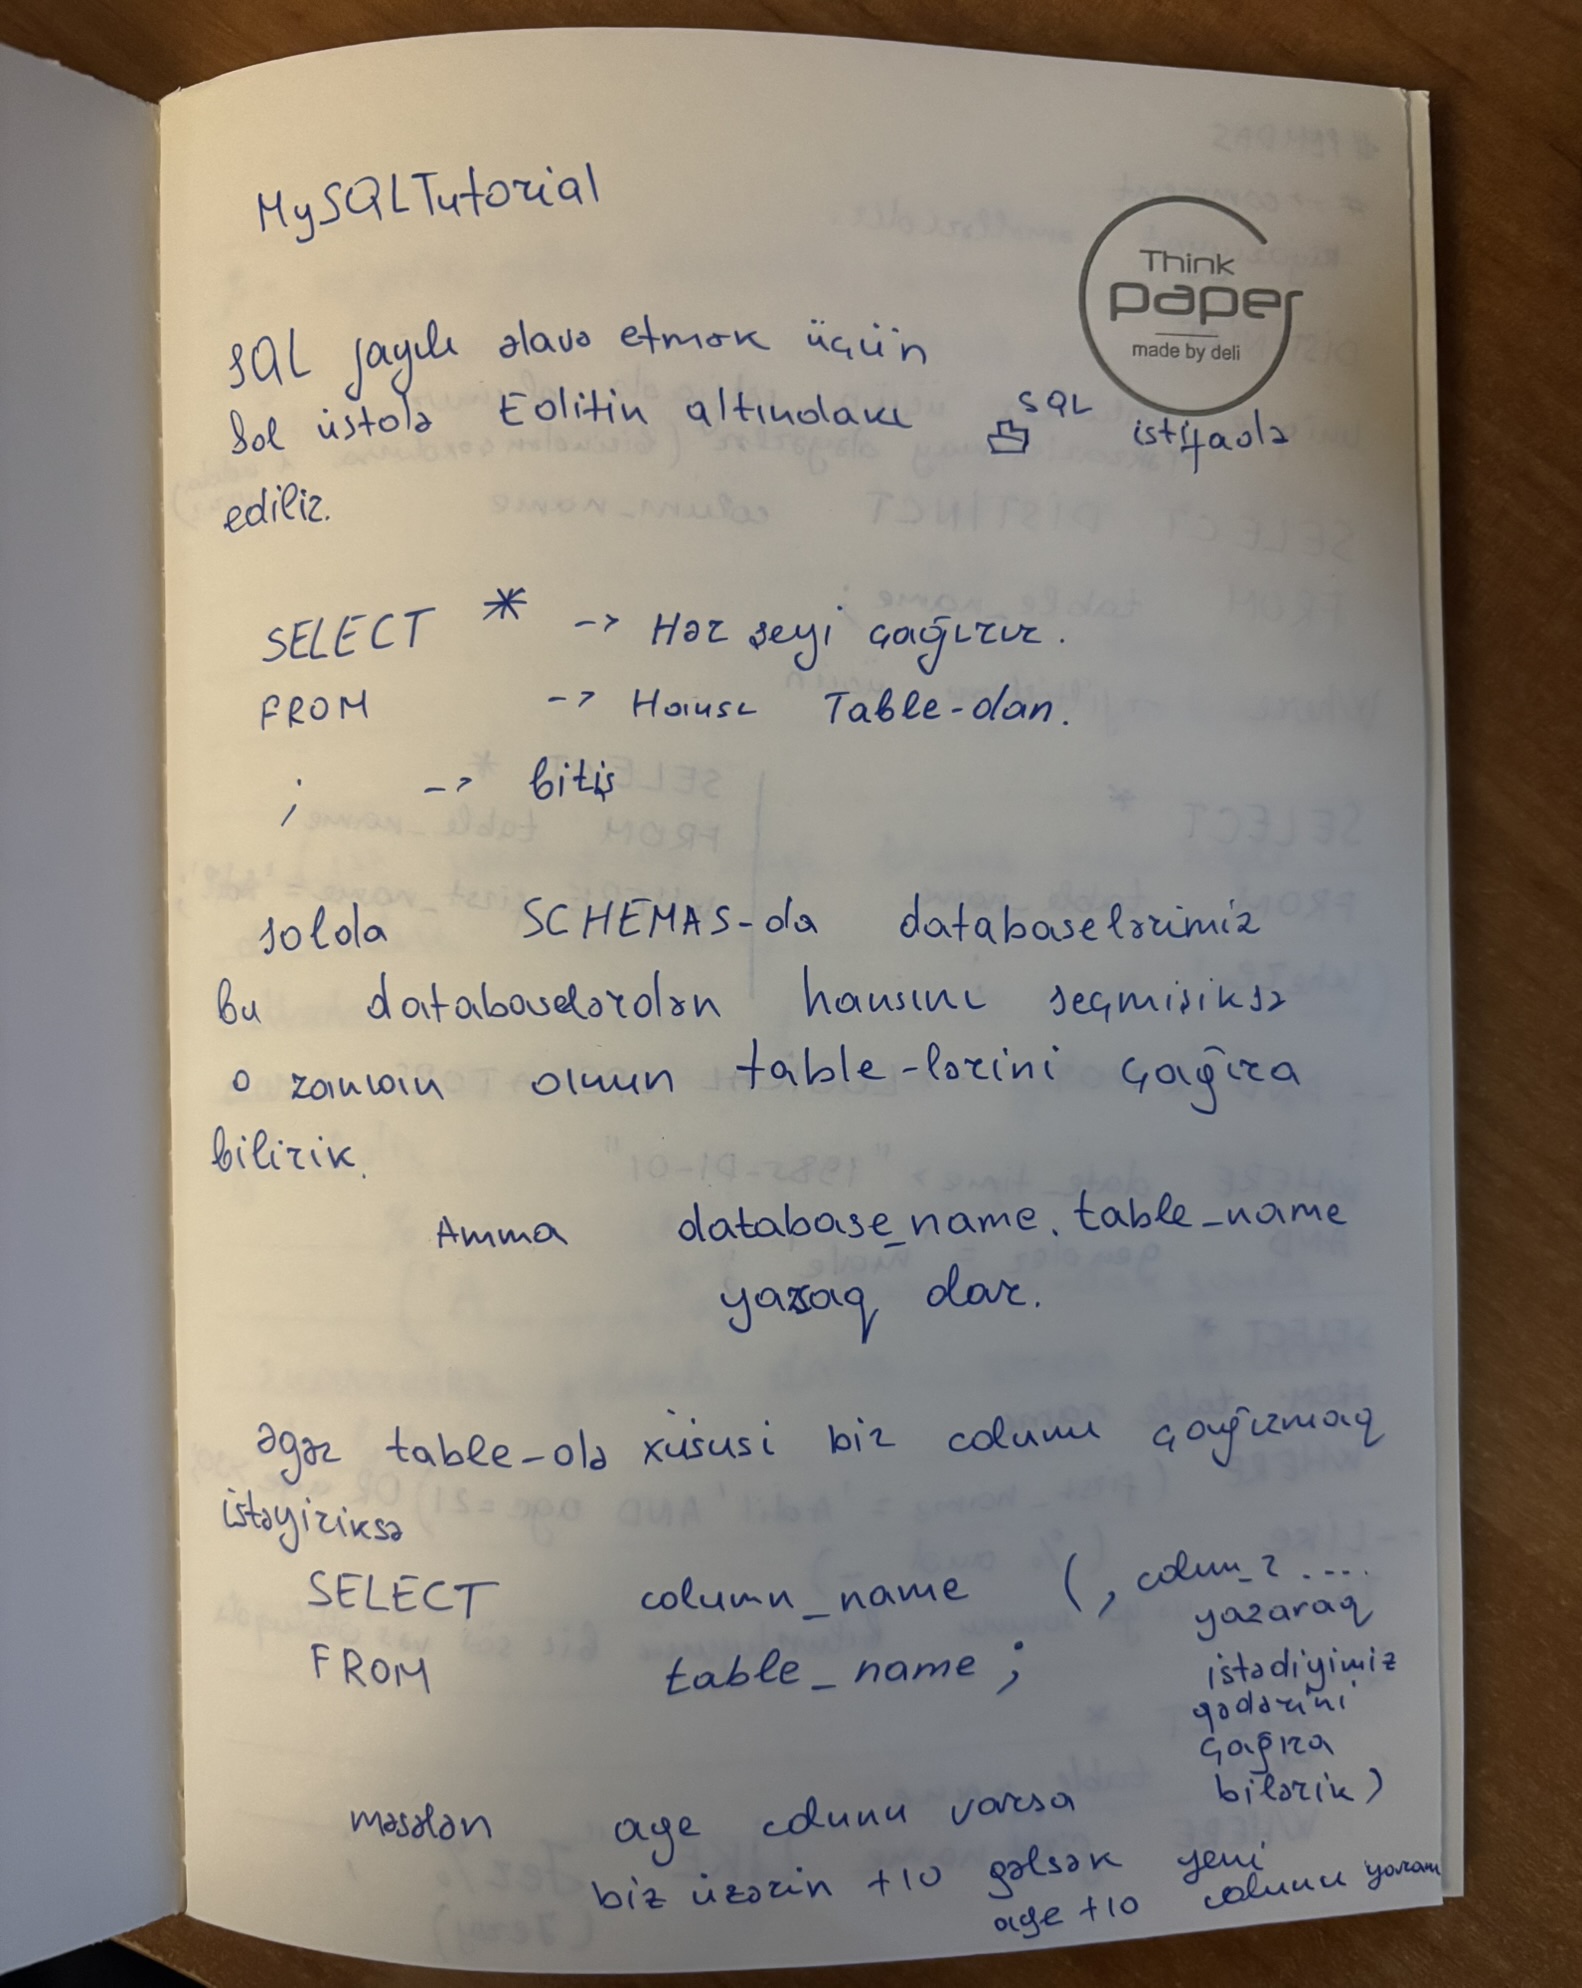 MySQLTutorial
Think
paper
made by deli
SQL faylı əlavə etmək üçün
Sol üstdə Editin altındakı SQL istifadə
ediliz.
SELECT * -> Hər şeyi çağırır.
FROM -> Hansı Table-dan.
; -> bitiş
solda SCHEMAS-da databaselərimiz
bu databaselərdən hansını seçmişiksə
o zaman onun table-lərini çağıra
bilirik.
Amma database_name.table_name
yazsaq olar.
Əgər table-də xüsusi bir column çağırmaq
istəyiriksə
SELECT column_name (, colum_2 ....
yazaraq
FROM table_name ;
istədiyimiz
qədərini
çağıra
bilərik)
məsələn age column varsa
biz üzərin +10 gəlsək yeni
age +10 column yaranı